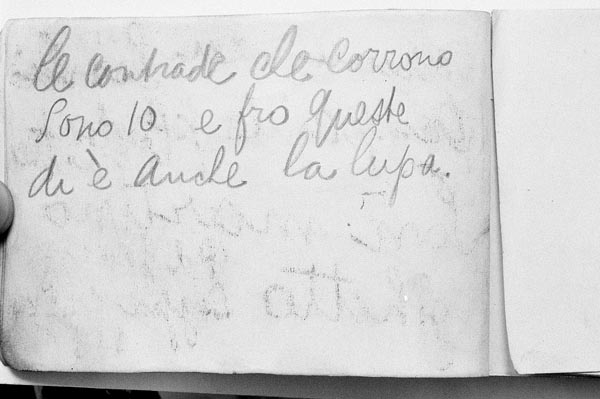 le contrade che corrono
sono 10 e fra queste
di è anche la lupa.